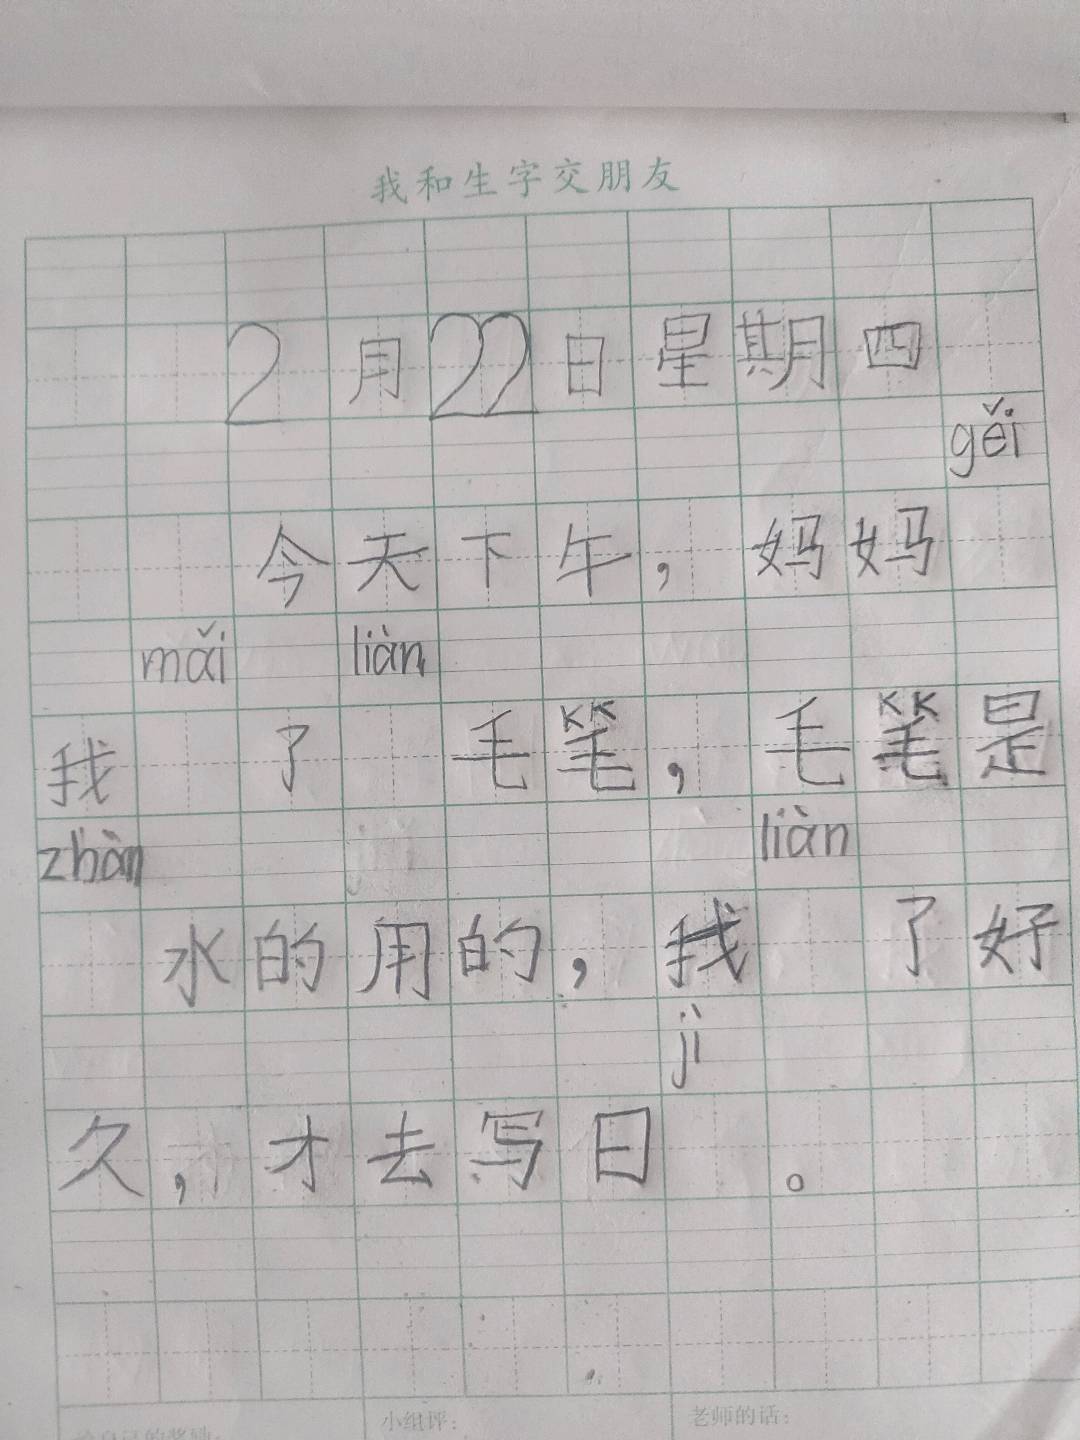 我和生字交朋友
2月22日星期四
gěi
今天下午，妈妈
mǎi liàn
我 了 毛笔，毛笔是
zhàn liàn
水的用的，我 了好
jì
久，才去写日 。
小组评： 老师的话：